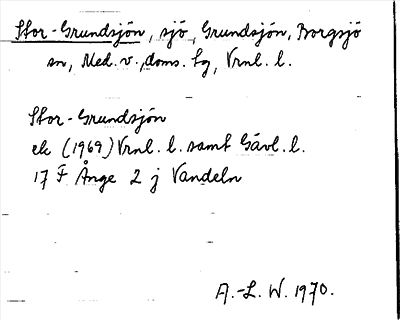 Stor-Grundsjön, sjö, Grundsjön, Borgsjö
sn, Med. v., doms. hg, Vrnl. l.
Stor-Grundsjön
ek (1969) Vrnl. l. samt Gävl. l.
17 F Ånge 2 j Vandeln
A.-L. W. 1970.